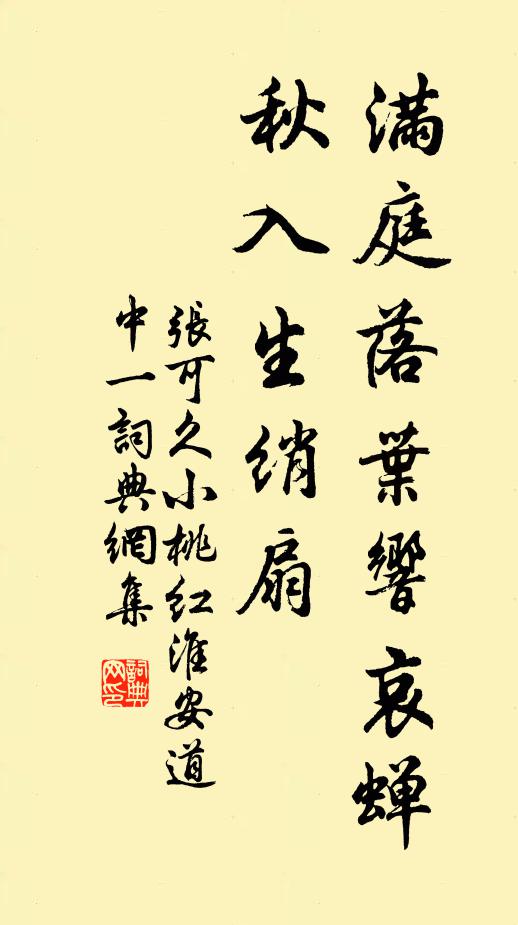 滿庭落葉響哀蟬
秋入生綃扇
張可久小桃紅淮安道
中一詞典網集
詞典网印